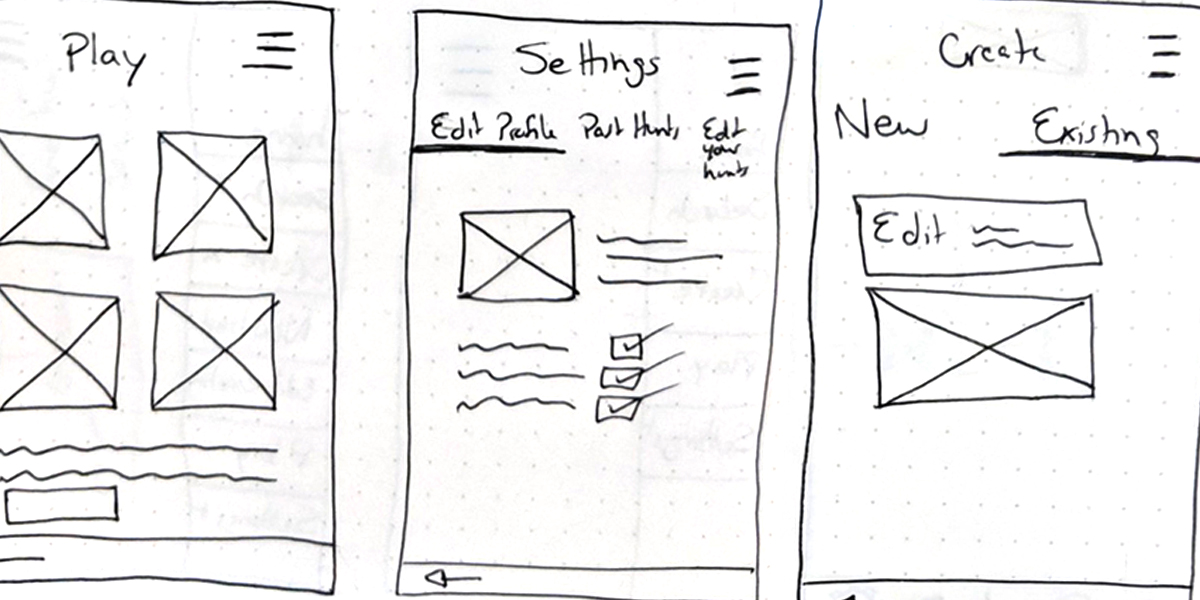 Play
Settings
Edit Profile Past Hunts Edit
your
hunts
Create
New Existing
Edit